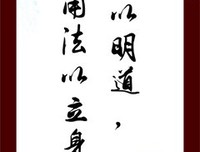 以明道，
用法以立身